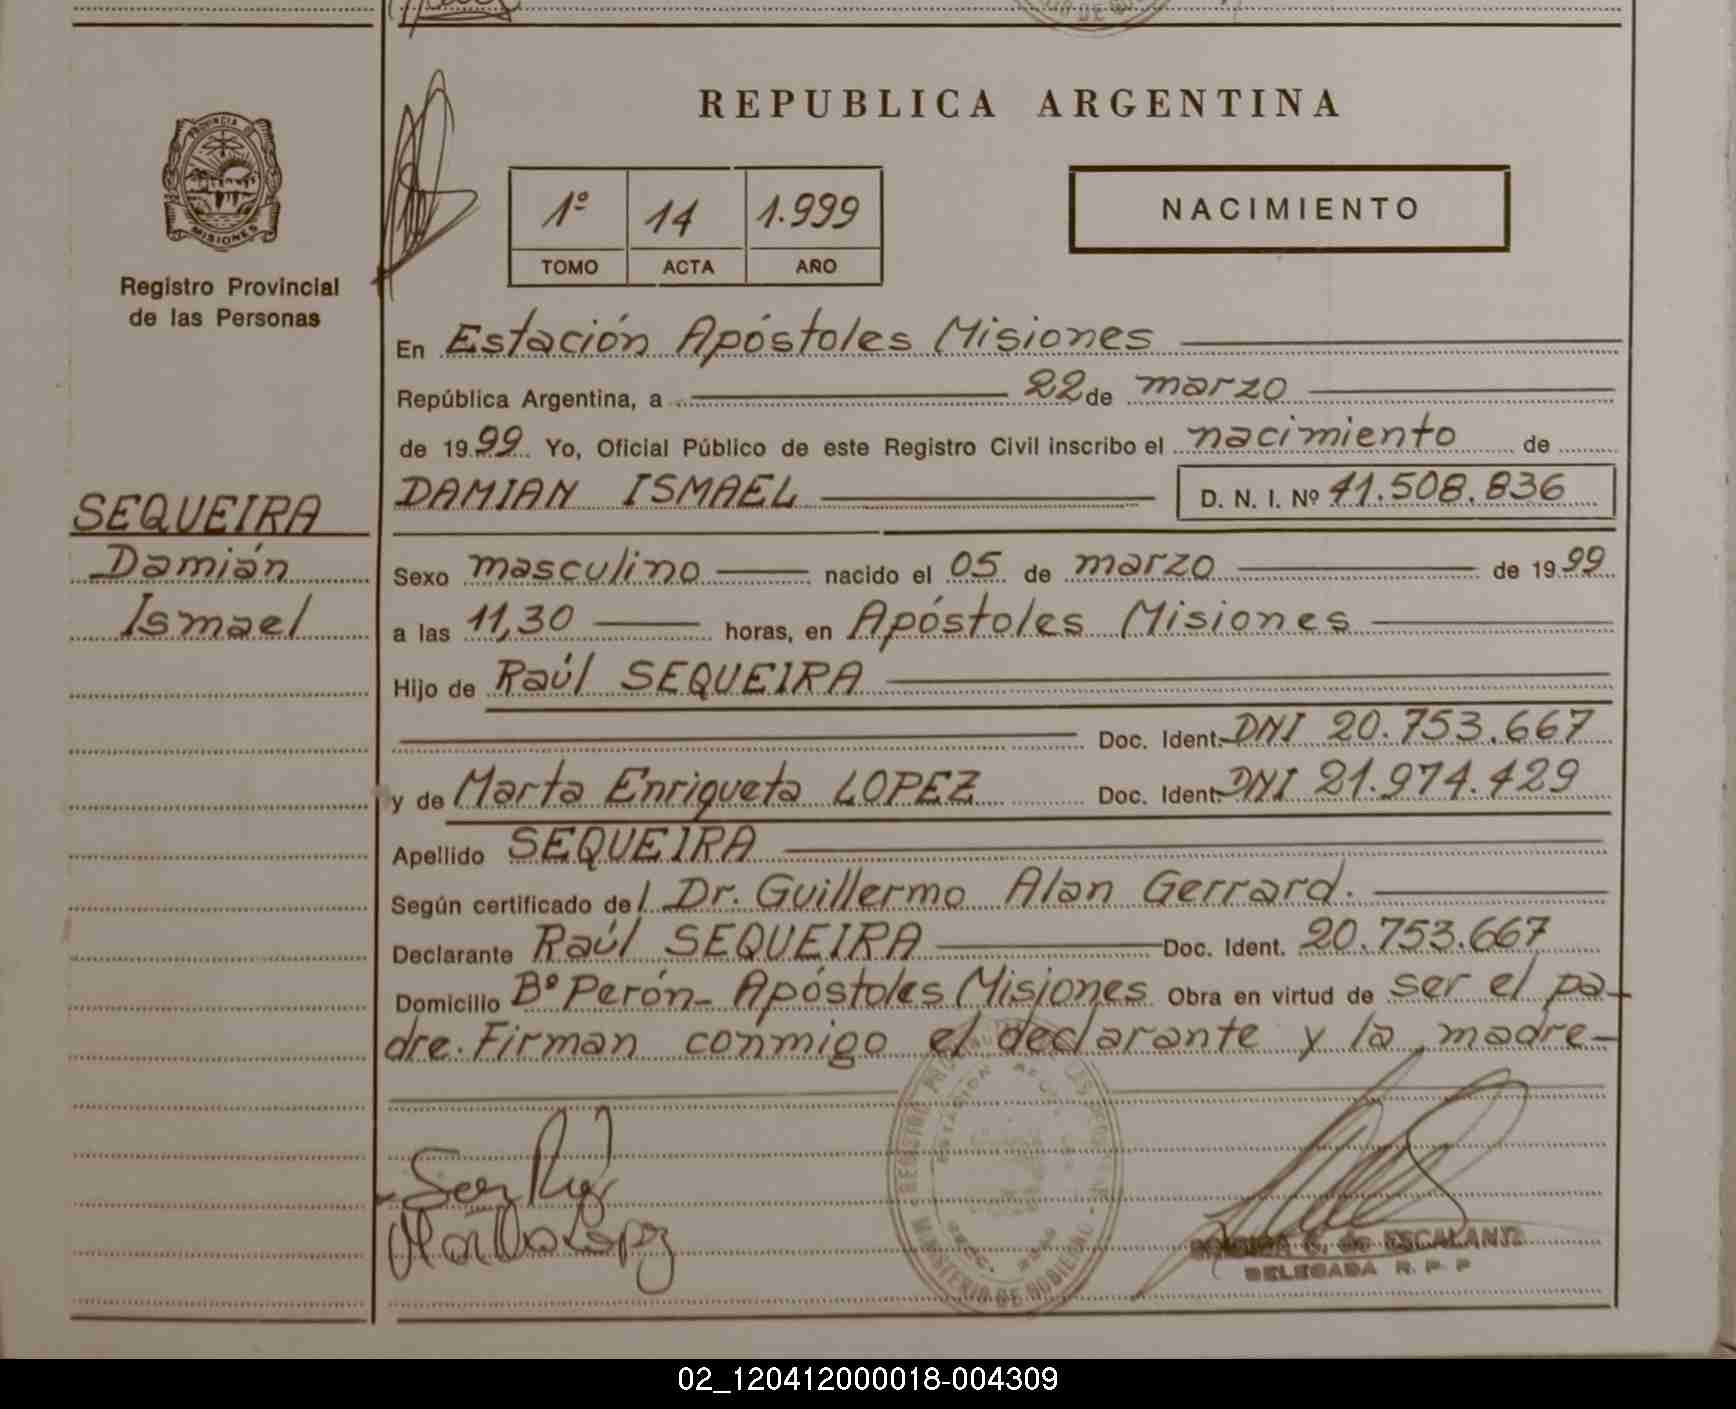 REPUBLICA ARGENTINA
PROVINCIA DE
MISIONES
Registro Provincial
de las Personas
1º 14 1.999
TOMO ACTA AÑO
NACIMIENTO
En Estación Apóstoles Misiones
República Argentina, a 22 de marzo
de 1999 Yo, Oficial Público de este Registro Civil inscribo el nacimiento de
DAMIAN ISMAEL D. N. I. Nº 41.508.836
SEQUEIRA
Damián
Ismael
Sexo masculino nacido el 05 de marzo de 1999
a las 11,30 horas, en Apóstoles Misiones
Hijo de Raúl SEQUEIRA
Doc. Ident. DNI 20.753.667
y de Marta Enriqueta LOPEZ Doc. Ident. DNI 21.974.429
Apellido SEQUEIRA
Según certificado del Dr. Guillermo Alan Gerrard.
Declarante Raúl SEQUEIRA Doc. Ident. 20.753.667
Domicilio Bº Perón- Apóstoles Misiones Obra en virtud de ser el pa-
dre. Firman conmigo el declarante y la madre-
MINISTERIO DE GOBIERNO
de ESCALANTE
DELEGADA R. P. P
02_120412000018-004309